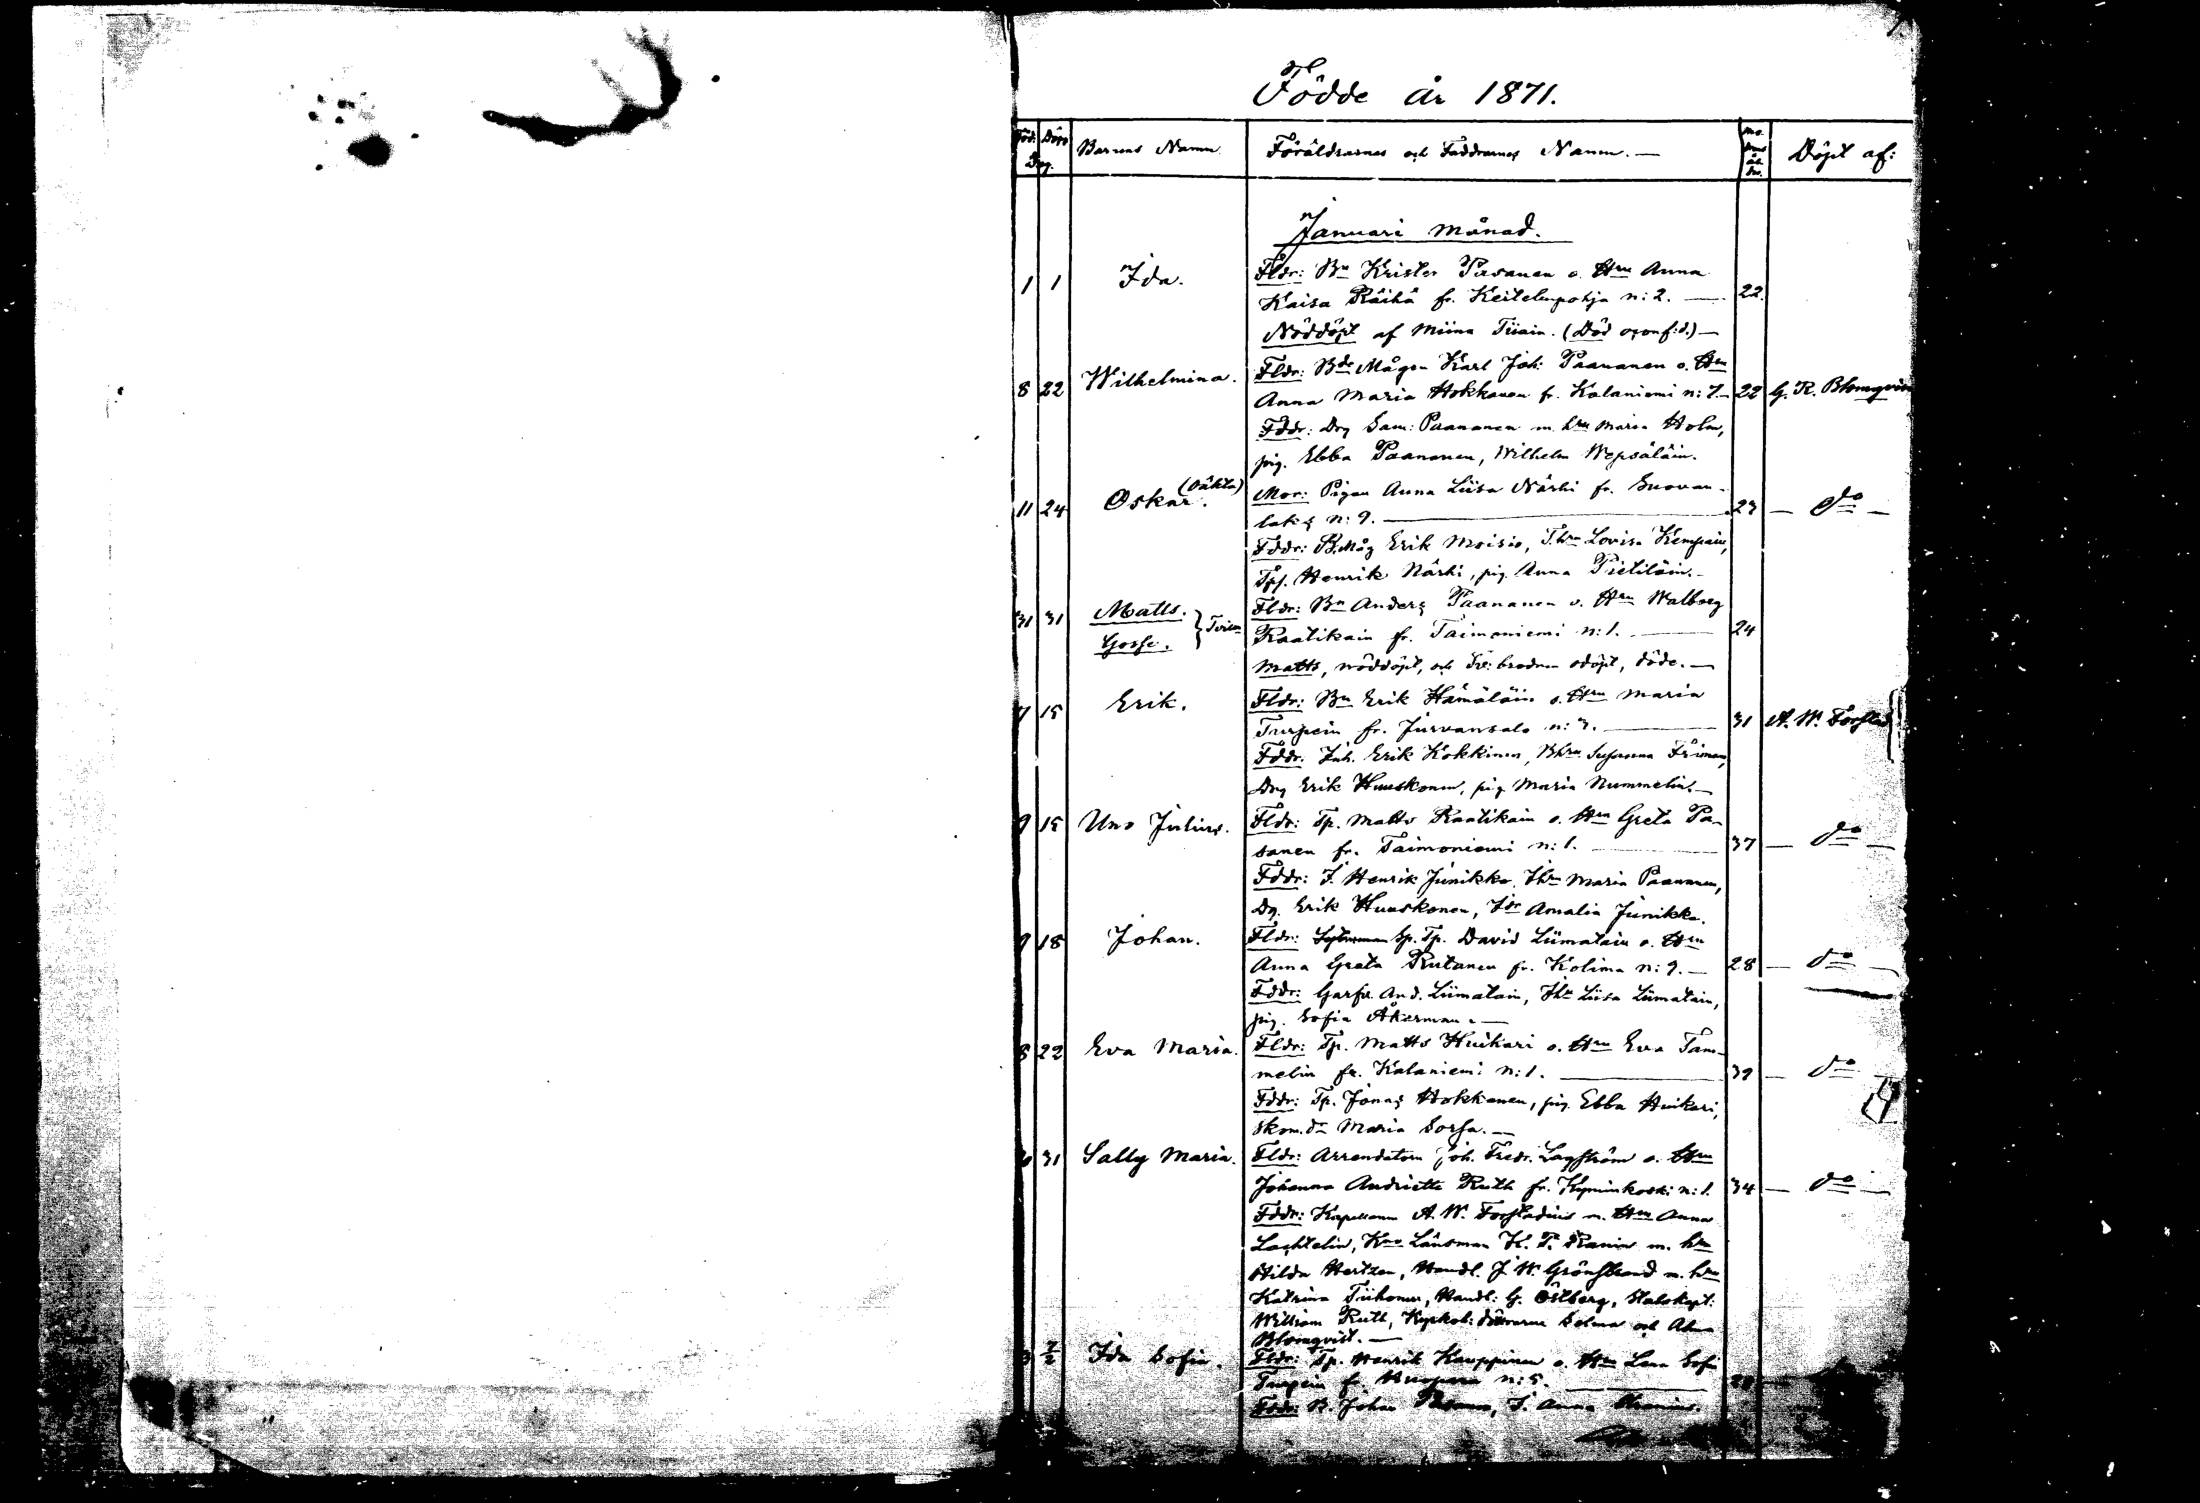 Födde år 1871.
Föd. Döps Dag. Barnens Namn. Föräldrarnes och Faddrarnes Namn. — Döpt af:
Januari månad.
1 1 Ida. Fldr: Bn Krister Pasanen o. Hru Anna
Kaisa Räihä fr. Keitelepohja n: 2. — 22.
Nöddöpt af Miina Tiiain. (Död
8 22 Wilhelmina. Fldr: Bde Mågen Karl Joh: Paananen o. Hru
Anna Maria Hokkanen fr. Kalaniemi n: 7. — 22 G. R. Blomqvist
Fddr: Drg Sam: Paananen m. hru Maria Holm,
pig. Ebba Paananen, Wilhelm Wepsäläin.
11 24 Oskar. (oäkta) Mor: Pigan Anna Liisa Närhi fr. Suovan-
laks n: 9. — 23 — do —
Fddr: B.Måg Erik Moisio, T.hru Lovisa Kempain,
Tps. Henrik Närhi, pig. Anna Pietiläin. —
31 31 Matts. Gosse. } Tvill. Fldr: Bn Anders Paananen o. Hru Walborg
Raatikain fr. Taimoniemi n: 1. — 24
Matts, nöddöpt, och brodren odöpt, döde. —
7 15 Erik. Fldr: Bn Erik Hämäläin o. Hru Maria
Turpein fr. Jurvansalo n: 3. — 31 A. W. Forstad
Fddr. Inh. Erik Kokkinen, Bhru Susanna Friman,
Drg Erik Huuskonen, pig Maria Nummelin. —
9 15 Uno Julius. Fldr: Tp. Matts Raatikain o. Hru Greta Pa-
sanen fr. Taimoniemi n: 1. — 37 — do —
Fddr: I. Henrik Junikka, Ihru Maria Paananen,
Dg. Erik Huuskonen, Idr Amalia Junikka.
9 18 Johan. Fldr: Sp. Tp. David Liimatain o. Hru
Anna Greta Rutanen fr. Kolima n: 9. — 28 — do —
Fddr: Garfv. And. Liimatain, Ihru Liisa Liimatain,
pig. Sofia Åkerman. —
8 22 Eva Maria. Fldr: Tp. Matts Huikari o. Hru Eva Tam-
melin fr. Kalaniemi n: 1. — 39 — do —
Fddr: Tp. Jonas Hokkanen, pig. Ebba Huikari,
Skom. dr Maria Sorsa. —
31 Sally Maria. Fldr: Arrendatorn Joh. Fredr. Lagström o. Hru
Johanna Andrietta Ruth fr. Kyminkoski n: 1. 34 — do —
Fddr: Kapellanen A. W. Forstadius m. Hru Anna
Lachtelin, Kro Länsman K. F. Ranin m. hru
Hilda Hertzen, Handl. J. W. Grönstrand m. hru
Katrina Tiihonen, Handl: G. Östberg, Stabskapt:
William Ruth, Kyrkoh: döttrarne Selma och
Blomqvist. —
3 7/2 Ida Sofia. Fldr: Tp. Henrik Kauppinen o. Hru Lena Sofi
Turpein fr. n: 5. — 28
Fddr: B. Johan I. Anna